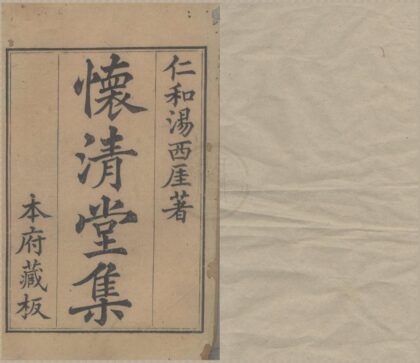 仁和湯西厓著
懷清堂集
本府藏板